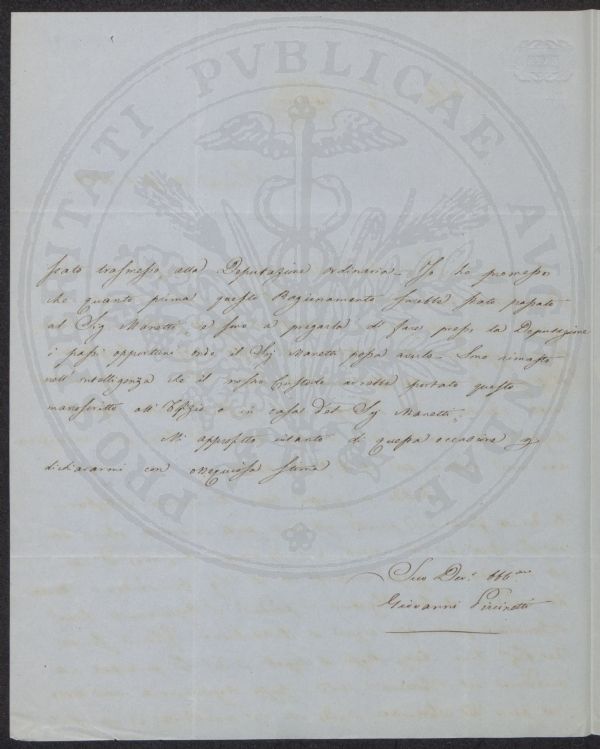 PROSPERITATI PVBLICAE AVGENDAE
stato trasmesso alla Deputazione ordinaria. Io ho promesso
che quanto prima questo Ragionamento sarebbe stato passato
al Sig Manetti e sono a pregarla di fare presso la Deputazione
i passi opportuni onde il Sig Manetti possa averlo. Sono rimasto
nell'intelligenza che il nostro Custode avrebbe portato questo
manoscritto all'Ufizio o in casa del Sig Manetti.
Mi approfitto intanto di questa occasione p
dichiararmi con ossequiosa stima
Suo Dev.
Giovanni